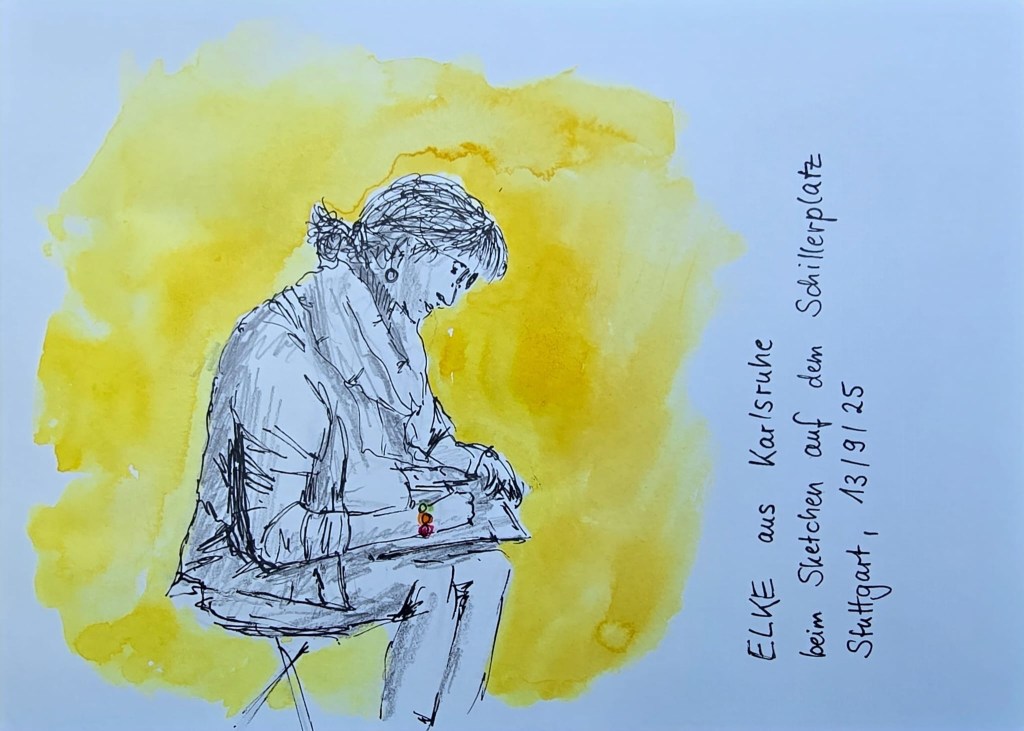 ELKE aus Karlsruhe
beim Sketchen auf dem Schillerplatz
Stuttgart, 13/9/25